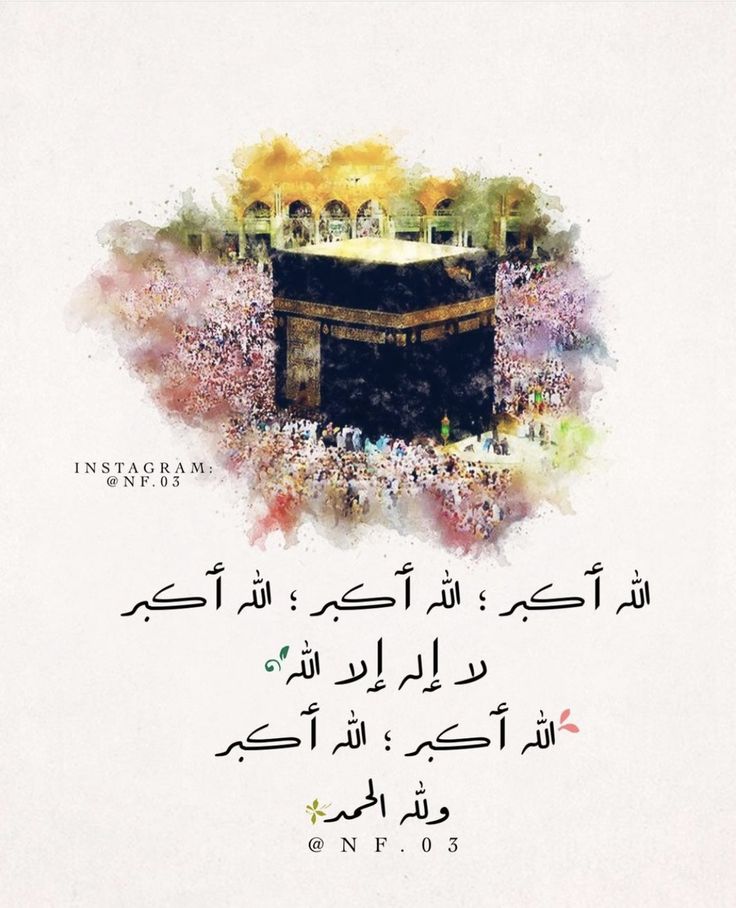 INSTAGRAM:
@NF.03
الله أكبر ؛ الله أكبر ؛ الله أكبر
لا إله إلا الله
الله أكبر ؛ الله أكبر
ولله الحمد
@NF.03